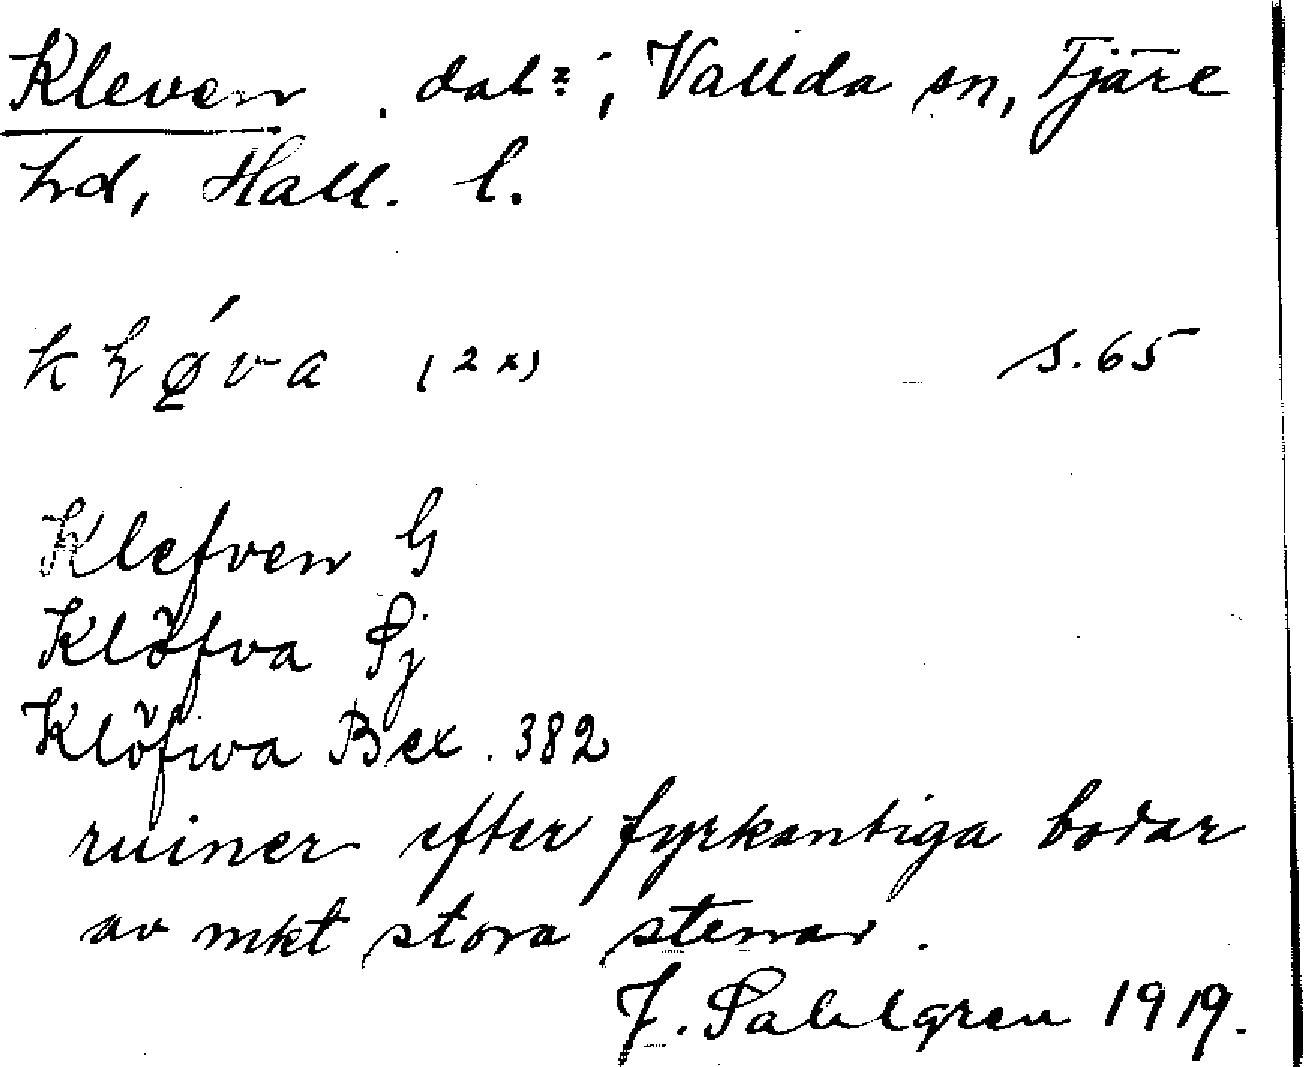 Kleven, dal=; Vallda sn, Fjäre
hd, Hall. l.
s. 65
Klefven G
Klöfva Sj
Klöfwa Bex. 382
ruiner efter fyrkantiga bodar
av mkt stora stenar.
J. Sahlgren 1919.